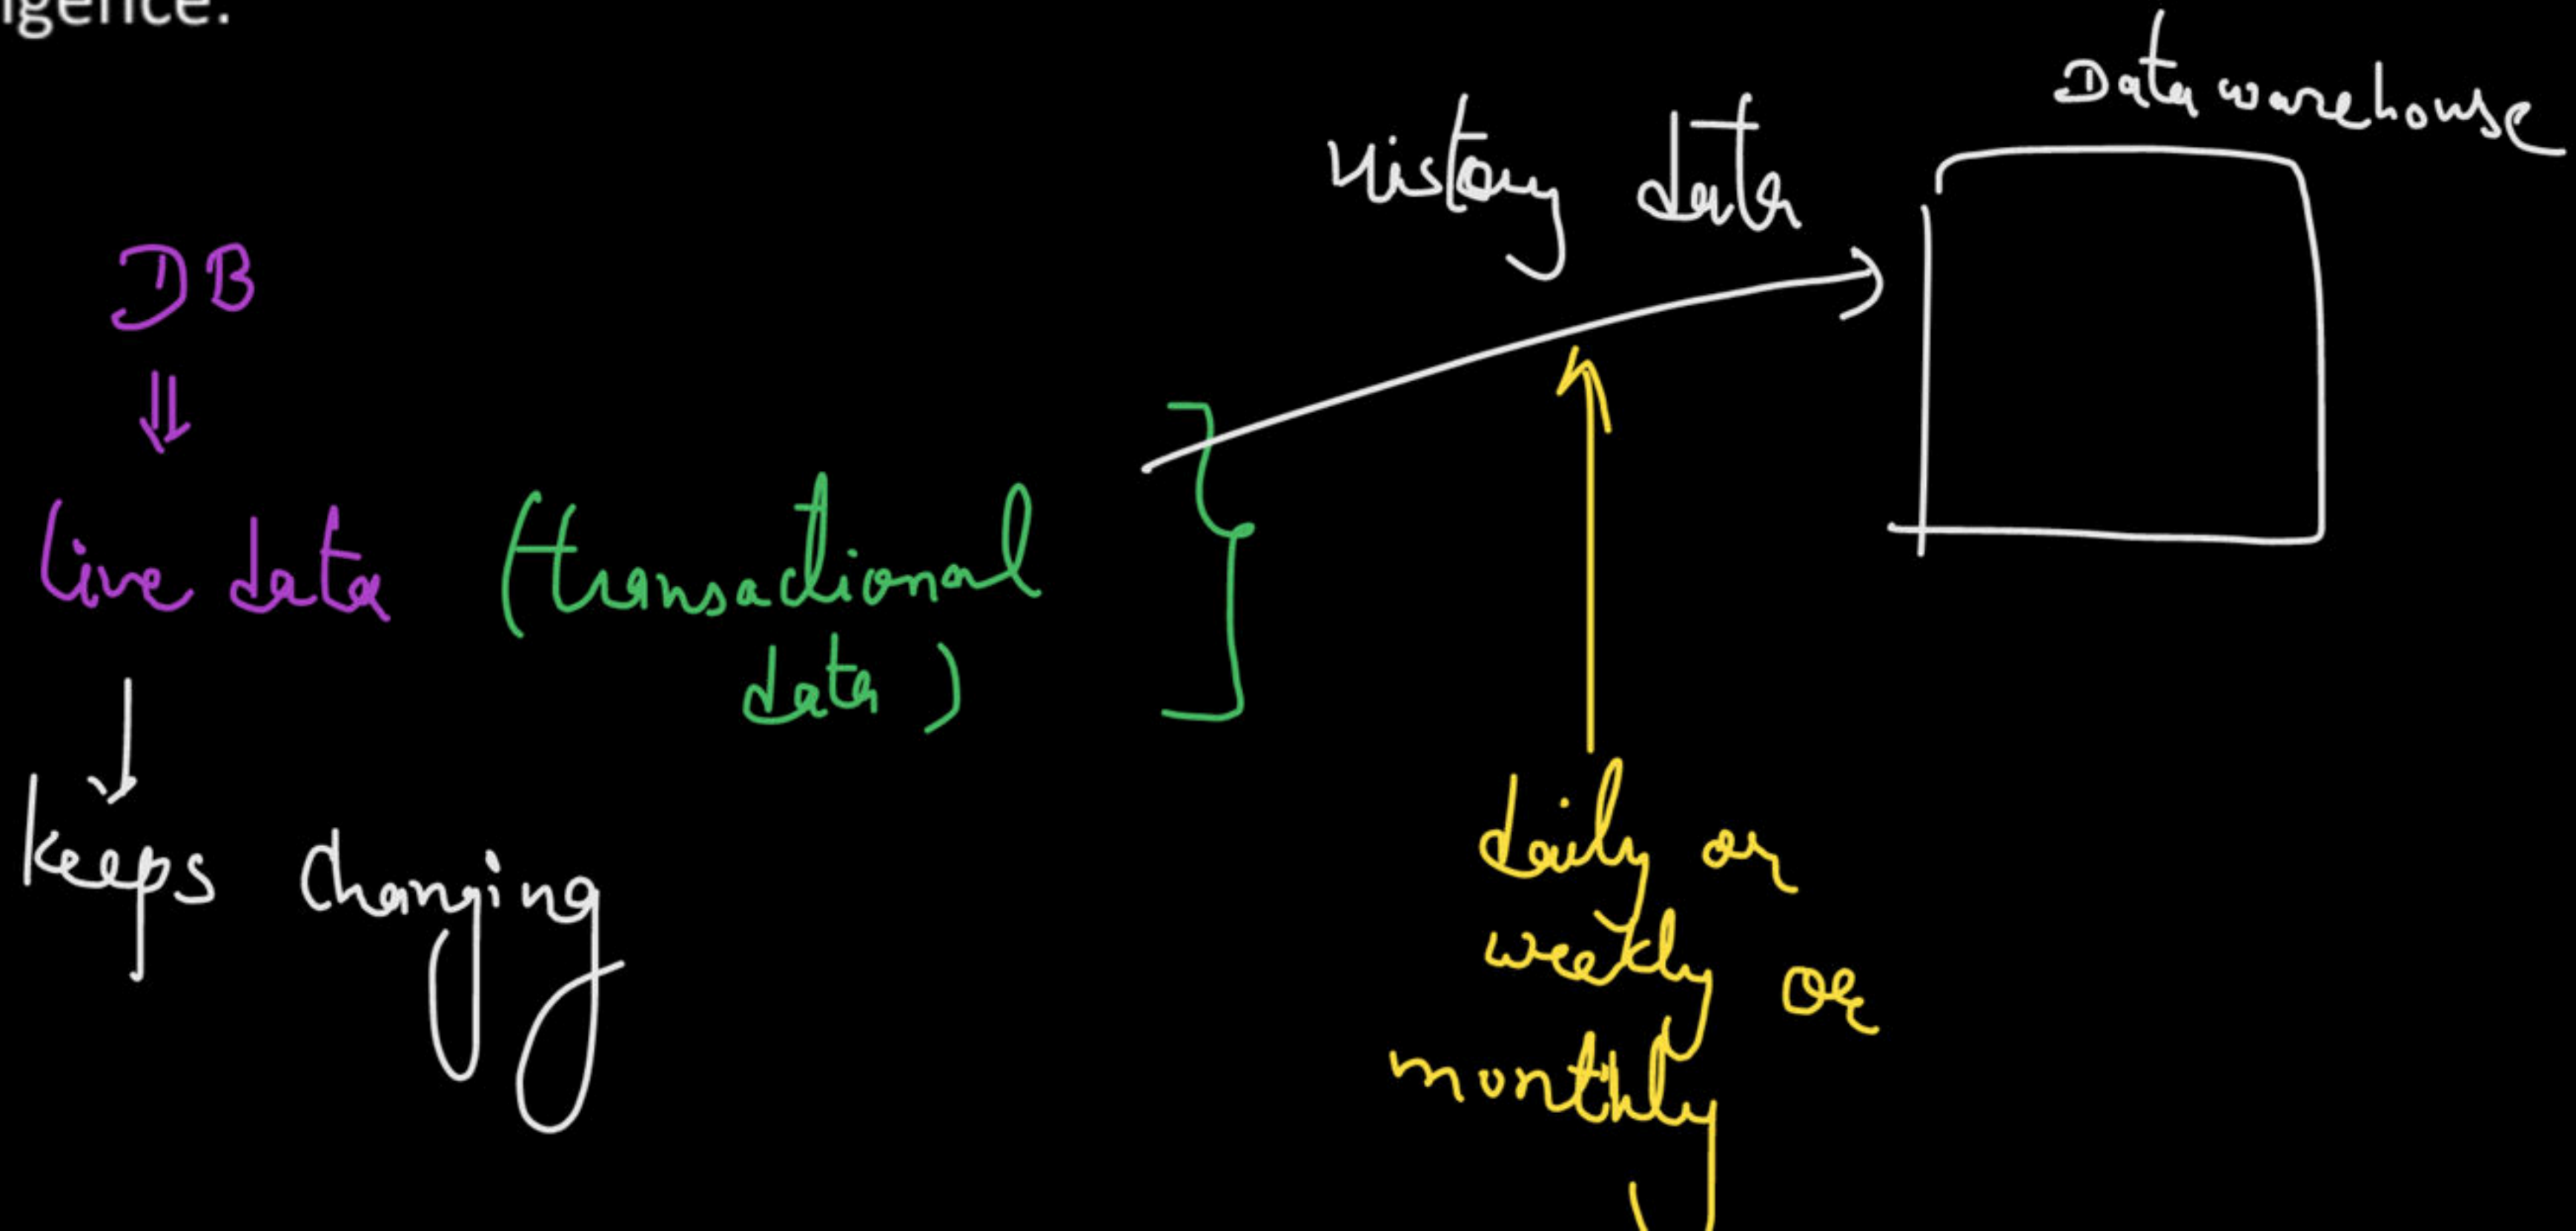 igence.
Data warehouse
History data
DB
live data (transactional
data)
keeps changing
daily or
weekly or
monthly